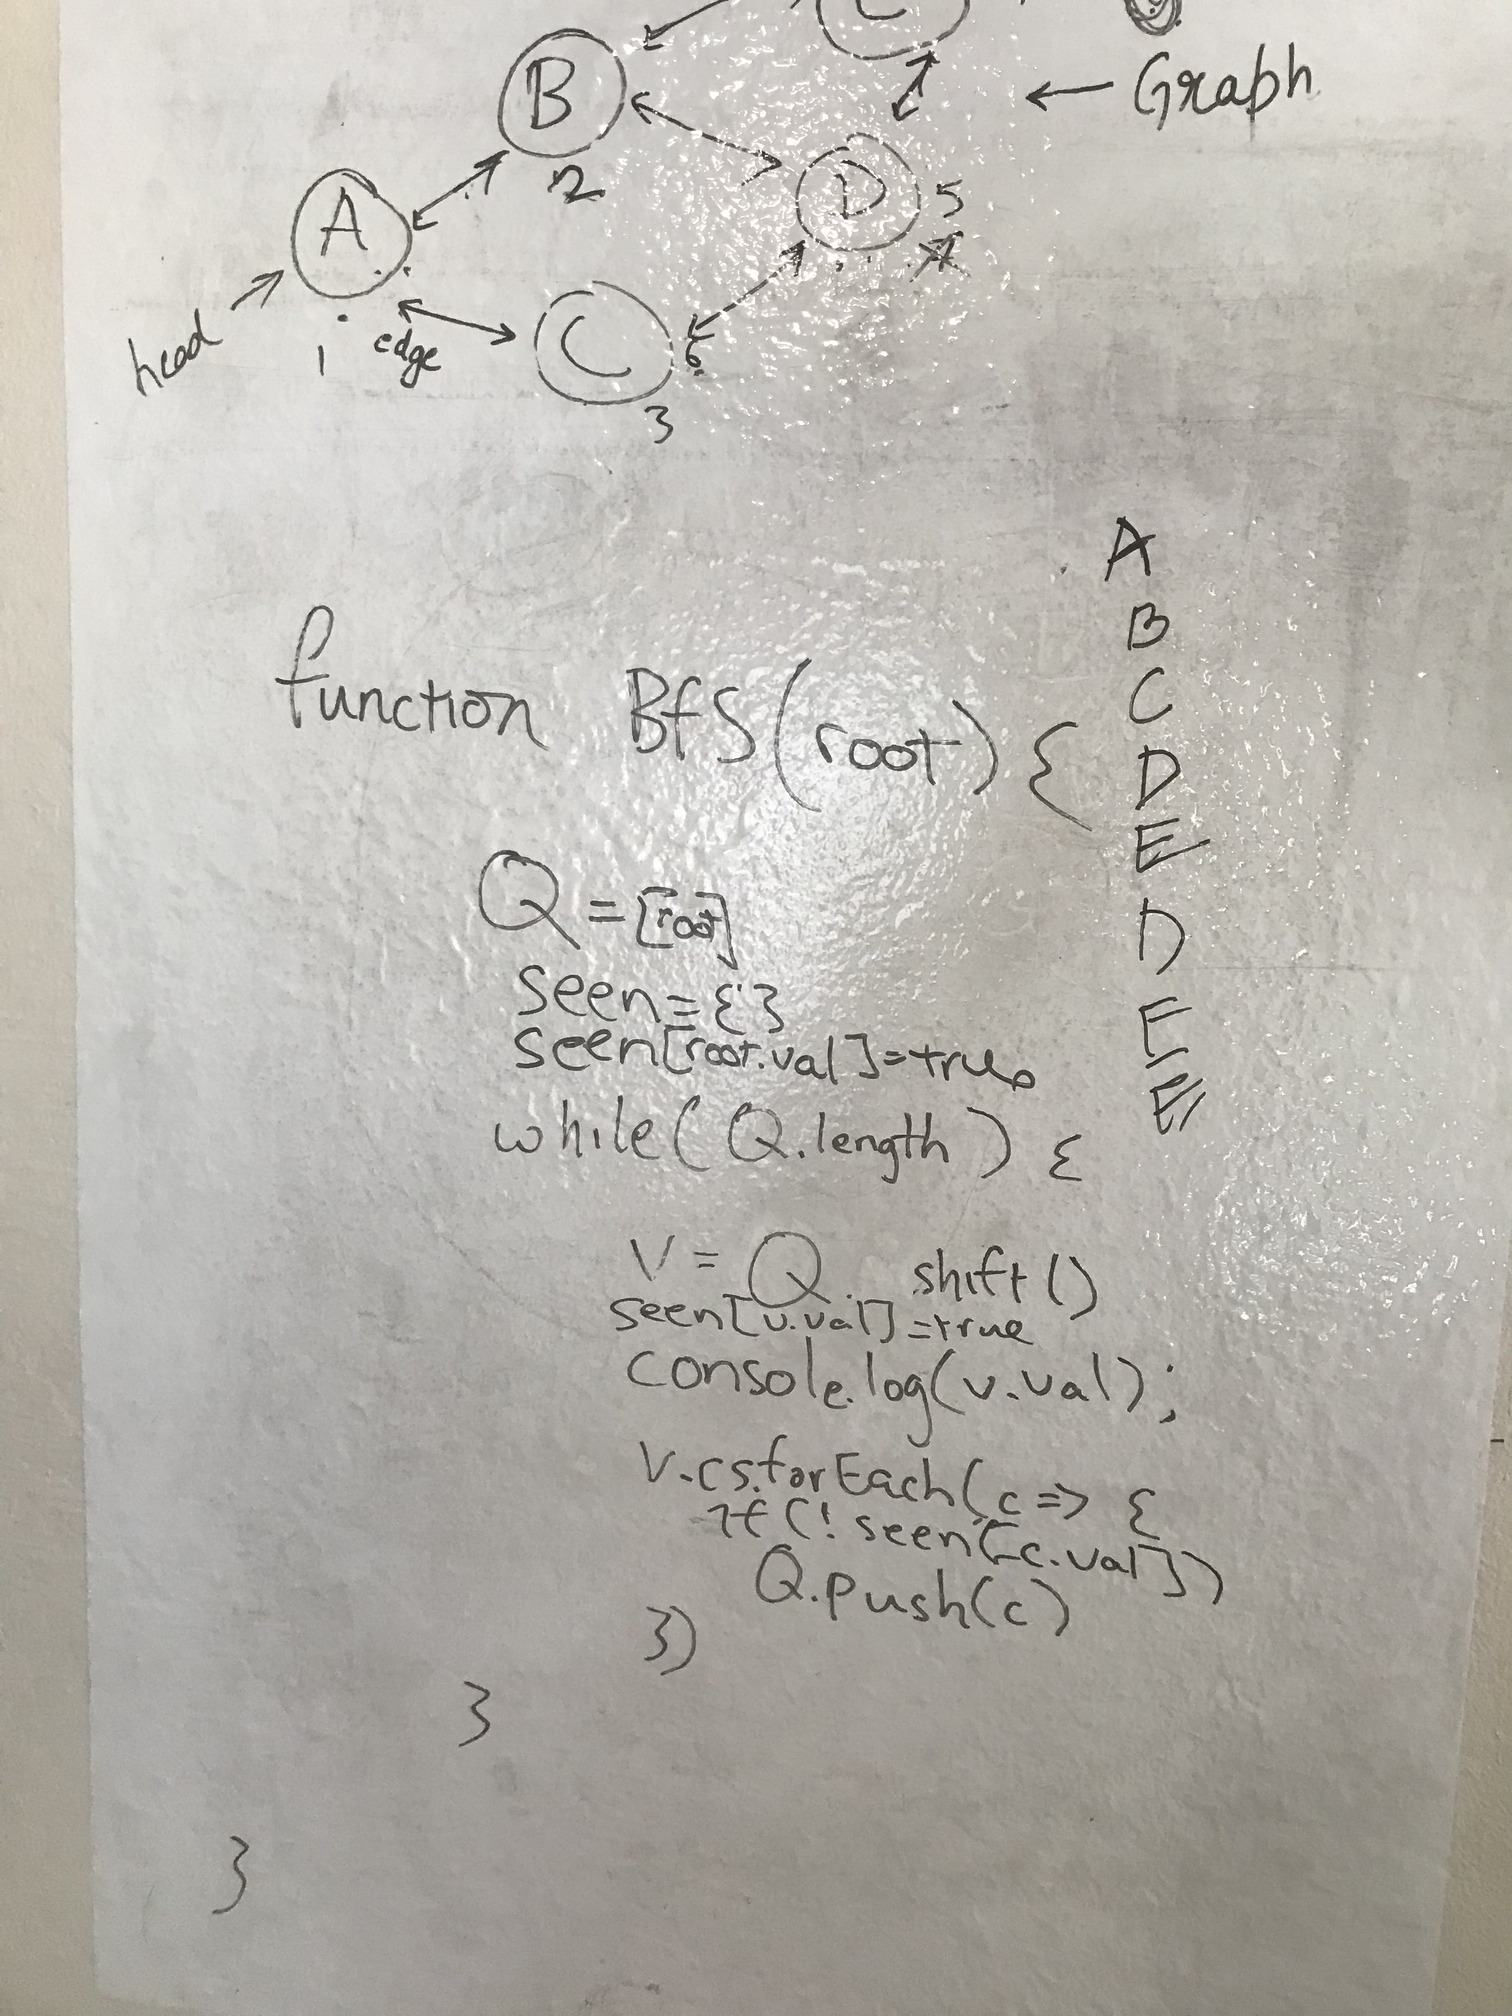 Graph
B
2
D
5
A
head
1
edge
C
6
3
A
B
C
D
E
D
E
E
function BfS(root) {
Q = [root]
seen = {}
seen[root.val] = true
while(Q.length) {
v = Q. shift()
seen[v.val] = true
console.log(v.val);
v.cs.forEach(c => {
if(! seen[c.val])
Q.push(c)
})
}
}